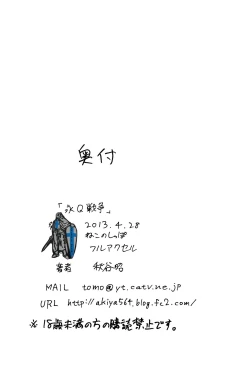 奥付
「氷Q戦争」
2013.4.28
ねこのしっぽ
フルアクセル
著者 秋谷昭
MAIL tomo@yt.catv.ne.jp
URL http://akiya564.blog.fc2.com/
※ 18歳未満の方の購読禁止です。